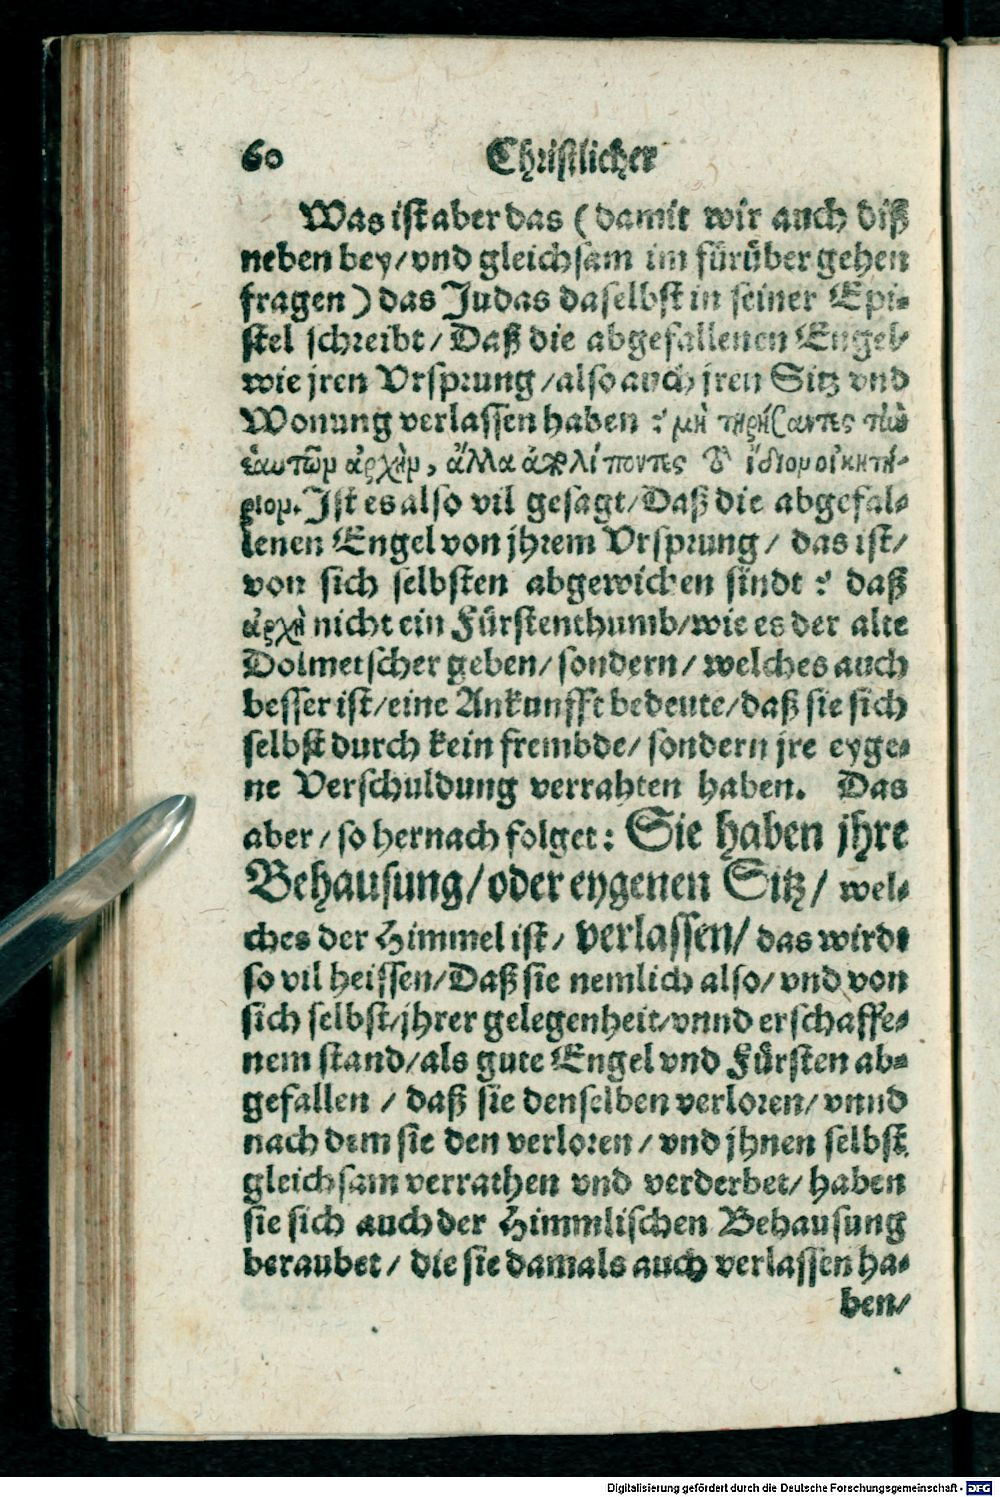 60 Christlicher
Was ist aber das (damit wir auch diß
neben bey/vnd gleichsam im fürüber gehen
fragen) das Judas daselbst in seiner Epi-
stel schreibt/Daß die abgefallenen Engel/
wie jren Vrsprung/also auch jren Sitz vnd
Wonung verlassen haben? μὴ τηρήσαντες τὴν
ἑαυτῶν ἀρχὴν, ἄλλα ἀπολίποντες τὸ ἴδιον οἰκητή-
ριον. Ist es also vil gesagt/Daß die abgefal-
lenen Engel von jhrem Vrsprung/ das ist/
von sich selbsten abgewichen sindt? daß
ἀρχὴ nicht ein Fürstenthumb/wie es der alte
Dolmetscher geben/sondern/welches auch
besser ist/eine Ankunfft bedeute/daß sie sich
selbst durch kein frembde/sondern jre eyge-
ne Verschuldung verrahten haben. Das
aber/so hernach folget: Sie haben jhre
Behausung/oder eygenen Sitz/ wel-
ches der Himmel ist/ verlassen/ das wirdt
so vil heissen/Daß sie nemlich also/vnd von
sich selbst/jhrer gelegenheit/vnnd erschaffe-
nem stand/als gute Engel vnd Fürsten ab-
gefallen/ daß sie denselben verloren/vnnd
nach dem sie den verloren/vnd jhnen selbst
gleichsam verrathen vnd verderbet/haben
sie sich auch der Himmlischen Behausung
beraubet/ die sie damals auch verlassen ha-
ben/
Digitalisierung gefördert durch die Deutsche Forschungsgemeinschaft - DFG